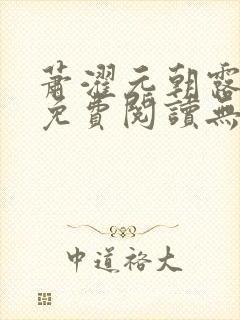 蕭濯元朝露
免費閱讀無
中道裕大